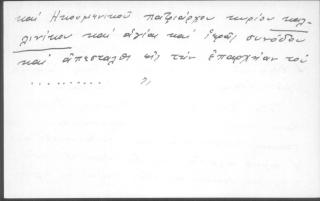 καί Ηκουμενικοῦ πατριάρχου κυρίου καλ-
λινίκου καί ἁγίας καί ἱερᾶς συνόδου
καί ἀπεσταλθι εἰς τήν ἐπαρχηαν τοῦ
.......... "